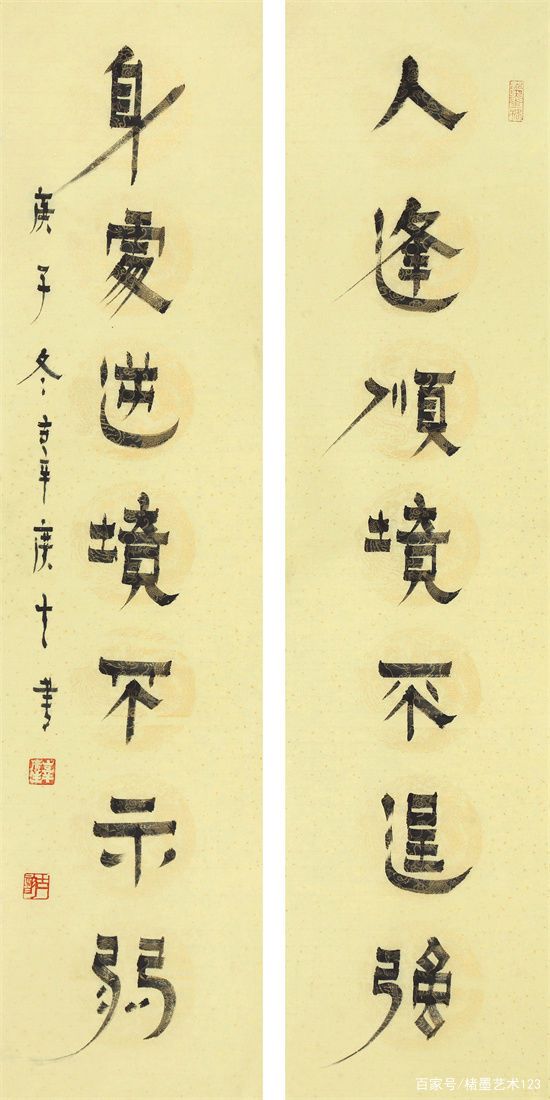 人逢順境不逞強
身處逆境不示弱
庚子冬書
百家号/楮墨艺术123